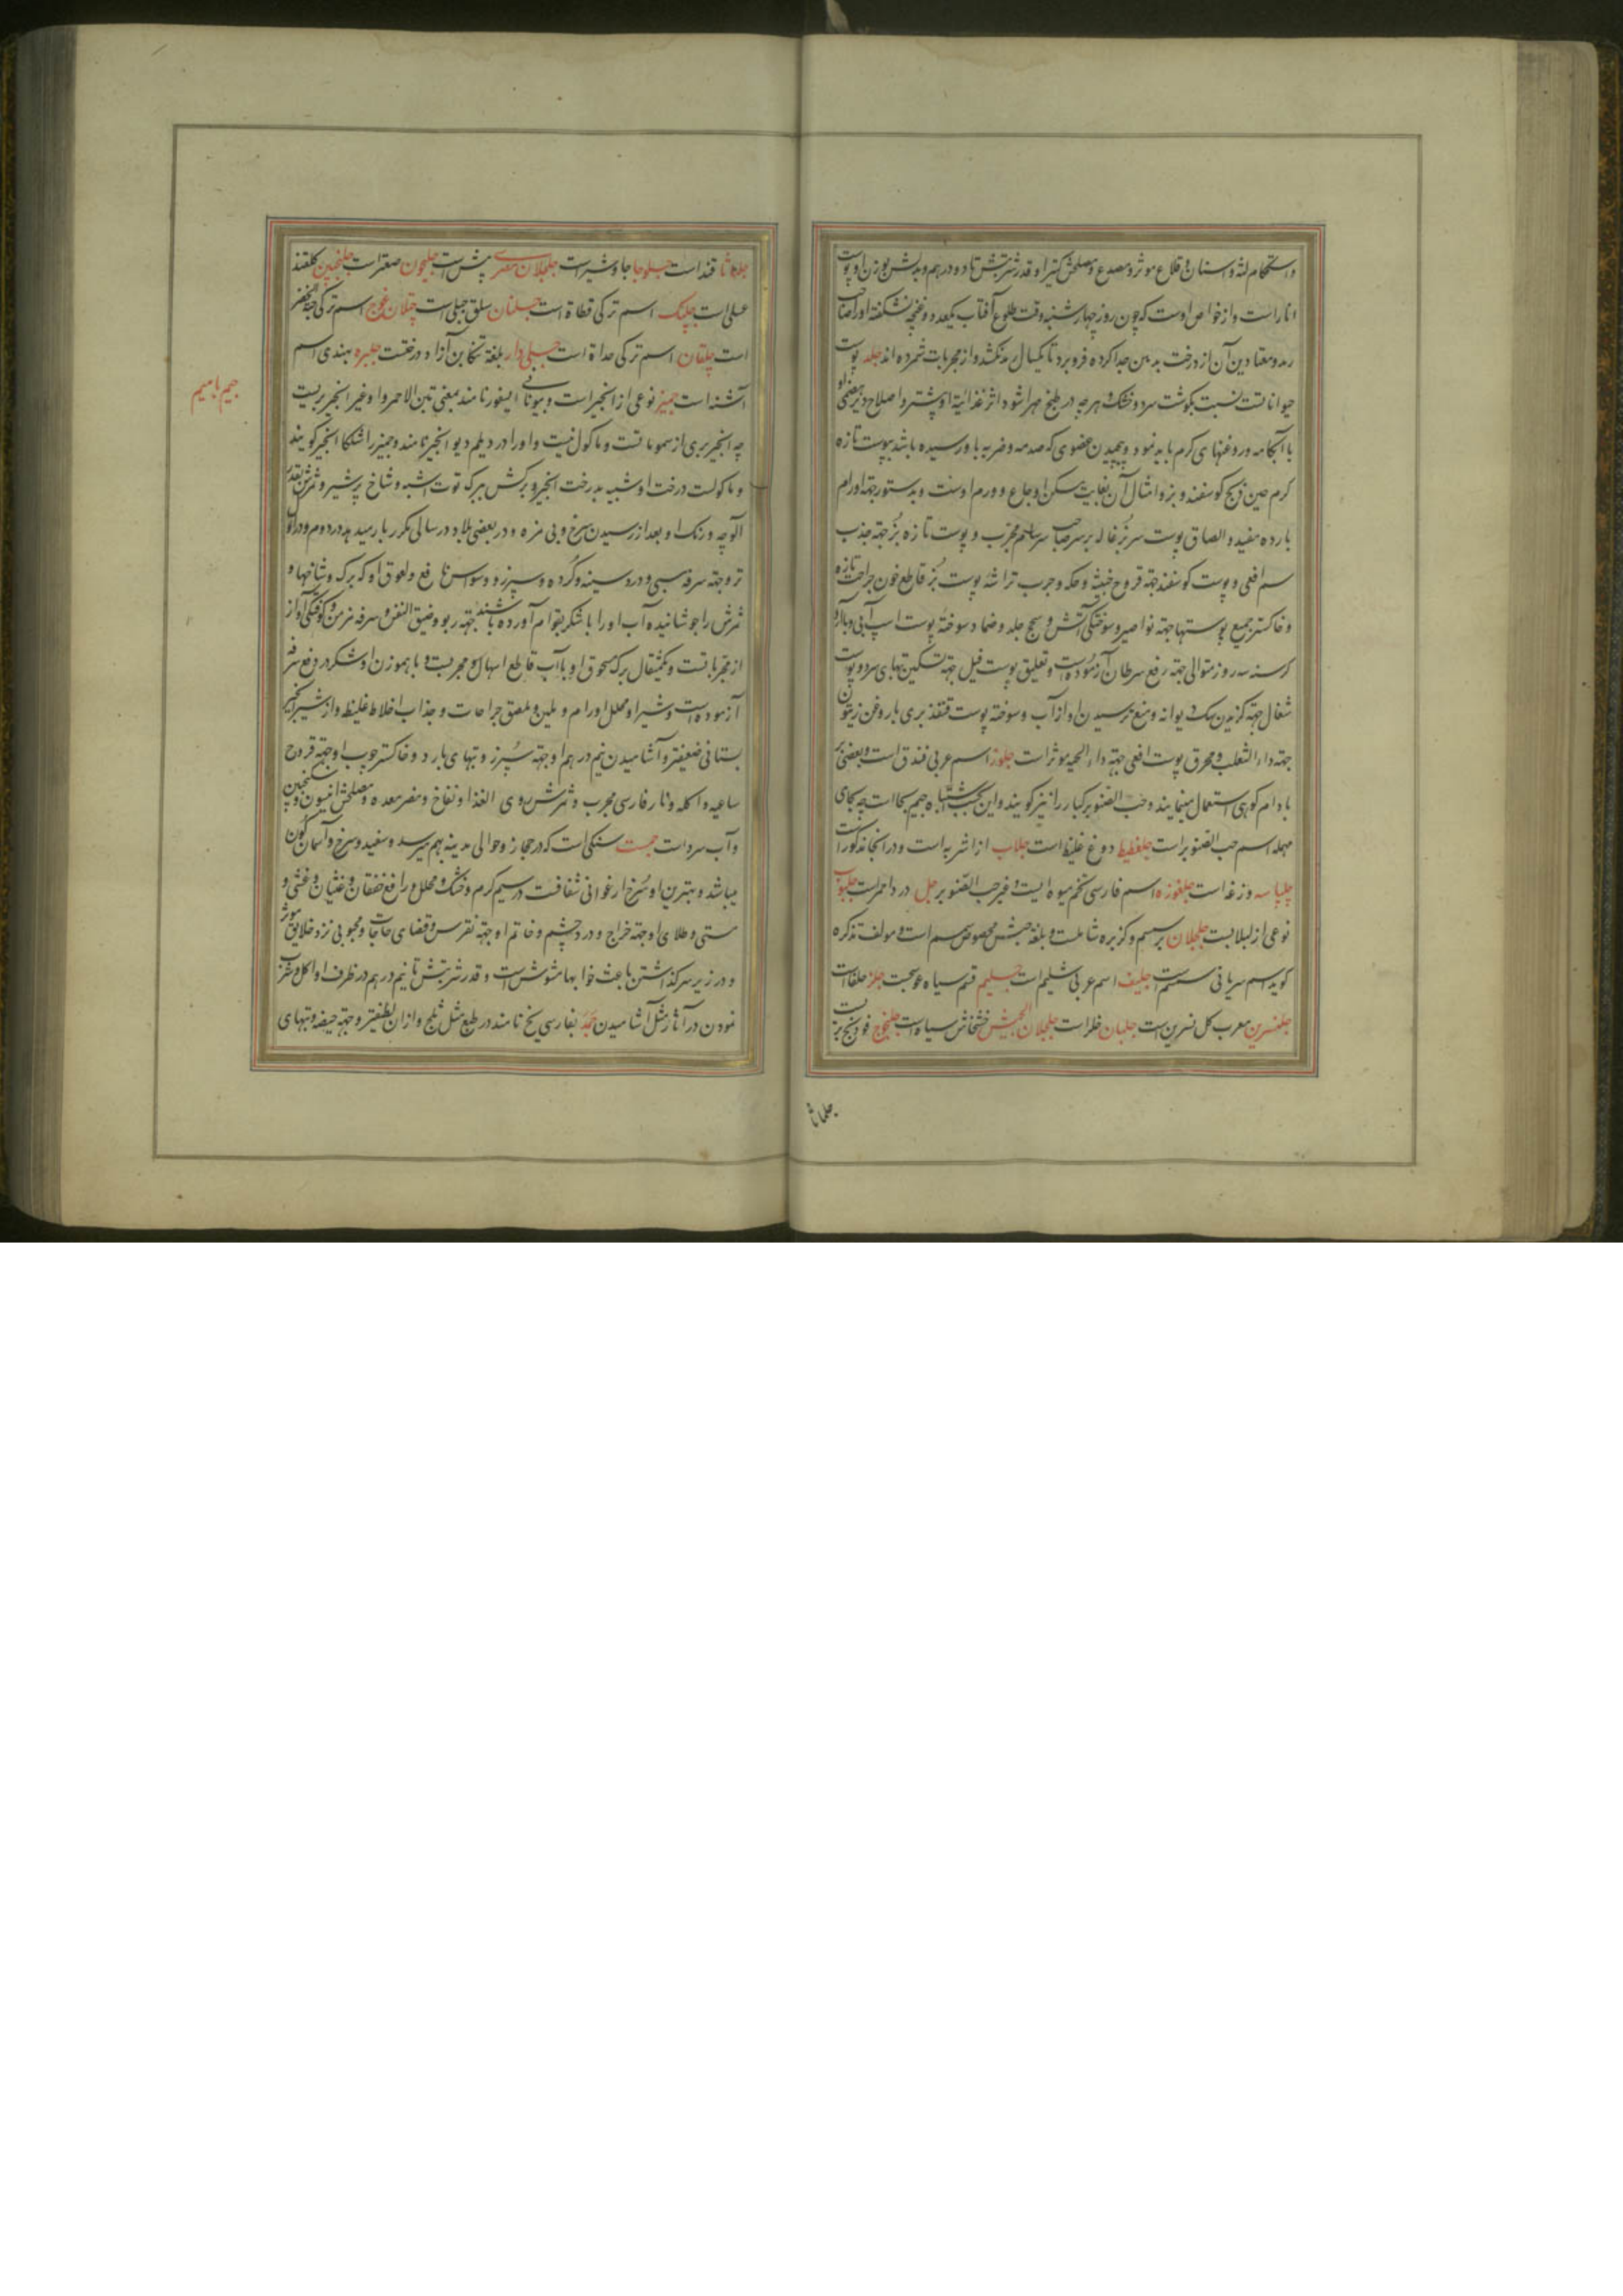 واستحکام لثه و اسنان و قلاع موثر و مصدع و مصلحش کتیرا و قدر شربتش تا دو درهم و بدلش بوزن او پوست
انار است و از خواص اوست که چون روز چهارشنبه وقت طلوع آفتاب یکعدد و غنچه نشکفته او را صاحب
رمد و معتادین آن از درخت بدهن جدا کرده فرو برد تا یکسال رمد نکشد و از مجربات شمرده اند جلد پوست
حیواناتست نسبت بگوشت سرد و خشک و هرچه در طبخ مهرا شود اثر غذائیة او بیشتر و اصلاح دیرهضمی او
با آبکامه و روغنهای کرم باید نمود و پیچیدن عضوی که صدمه و ضربه باو رسیده باشد بپوست تازه
کرم حین ذبح کوسفند و بز و امثال آن بغایت مسکن اوجاع و ورم اوست و بدستور جهة اورام
بارده مفید و الصاق پوست سر بزغاله بر سر صاحب سرسام مجرب و پوست تازه بز جهة جذب
سم افعی و پوست کوسفند جهة قروح خبیثه و حکه و جرب تراشه پوست بز قاطع خون جراحت تازه
و خاکستر جمیع پوستها جهة نواصیر و سوختکی آتش و سحج جلد و ضماد سوخته پوست اسپ آبی و بلادر
کرسنه سه روز متوالی جهة رفع سرطان آزموده است و تعلیق پوست فیل جهة تسکین تبهای سرد و پوست
شغال جهة کزیدن سک دیوانه و منع ترسیدن او از آب و سوخته پوست قنفذ بری با روغن زیتون
جهة داء الثعلب و محرق پوست افعی جهة داء الحیه موثر است جلوز اسم عربی فندق است و بعضی بر
بادام کوهی استعمال مینمایند و حب الصنوبر کبار را نیز کویند و این بحسب اشتباه جیم بحا است چه بحای
مهمله اسم حب الصنوبر است جلغطیط دوغ غلیظ است جلاب از اشربه است و در انجا مذکور است
چلپاسه وزغه است جلغوزه اسم فارسی تخم میوه ایست و غیر حب الصنوبر جل درد احمر است جلبوب
نوعی از لبلابست جلجلان بر سمسم و کزبره شاملست و بلغة حبش مخصوص سمسم است و مولف تذکره
کوید اسم سریانی سمسم است جلیف اسم عربی شیلم است جلیم قسم سیاه عوسجست جلز حلفا است
جلنسرین معرب کل نسرین است جلبان خلر است جلجلان الحبش خشخاش سیاه است جلنجوج فودنج بریست
جلماثا
جلماثا قند است جلوجا جاوشیر است جلجلان مصری بشن است جلیجون صعتر است جلنجبین کلقند
عسلی است چلنک اسم ترکی قطاة است جلنان سلق جبلی است چتلان غوج اسم ترکی حبة الخضرا
است چلقان اسم ترکی حداة است جلبی دار بلغة تنکابن آزاد درختست جلبره بهندی اسم
اشنه است جمیز نوعی از انجیر است و بیونانی ایسفور نامند بمعنی تین الاحمر و او غیر انجیر بریست
چه انجیر بری از سموماتست و ماکول نیست و او را در دیلم دیو انجیر نامند و جمیز را اشکال انجیر کویند
و ماکولست درخت او شبیه بدرخت انجیر و برکش ببرک توت اشبه و شاخ پرشیر و ثمرش بقدر
آلوچه و رنک او بعد از رسیدن سرخ و بی مزه و در بعضی بلاد در سالی مکرر بار میدهد در دوم و در اول
تر و جهة سرفه یبسی و درد سینه و کرده و سپرز و وسواس نافع و لعوق او که برک و شاخها و
ثمرش را جوشانیده آب او را با شکر بقوام آورده باشند جهة ربو و ضیق النفس و سرفه مزمن و کرفتکی آواز
از مجرباتست و یکمثقال برک مسحوق او با آب قاطع اسهال و مجربست و با هموزن او شکر در رفع سرفه
آزموده است و شیر او محلل اورام و ملین و ملصق جراحات و جذاب اخلاط غلیظ و از شیر انجیر
بستانی ضعیفتر و آشامیدن نیم درهم او جهة سپرز و تبهای بارد و خاکستر چوب او جهة قروح
ساعیه و اکله و نار فارسی مجرب و ثمرش ردی الغذا و نفاخ و مضر معده و مصلحش انیسون و سکنجبین
و آب سرد است جمست سنکی است که در حجاز و حوالی مدینه بهم میرسد و سفید و سرخ و آسمان کون
میباشد و بهترین او سرخ ارغوانی شفافست در سیم کرم و خشک و محلل و رافع خفقان و غثیان و غشی و
مستی و طلای او جهة خراج و درد چشم و خاتم او جهة نقرس و قضای حاجات و محبوبی نزد خلایق موثر
و در زیر سر کذاشتن باعث خوابها مشوش است و قدر شربتش تا نیم درهم در ظرف او اکل و شرب
نمودن در آثار مثل آشامیدن جمد بفارسی یخ نامند در طبع مثل ثلج و از ان لطیفتر و جهة حیضه و تبهای
جیم با میم